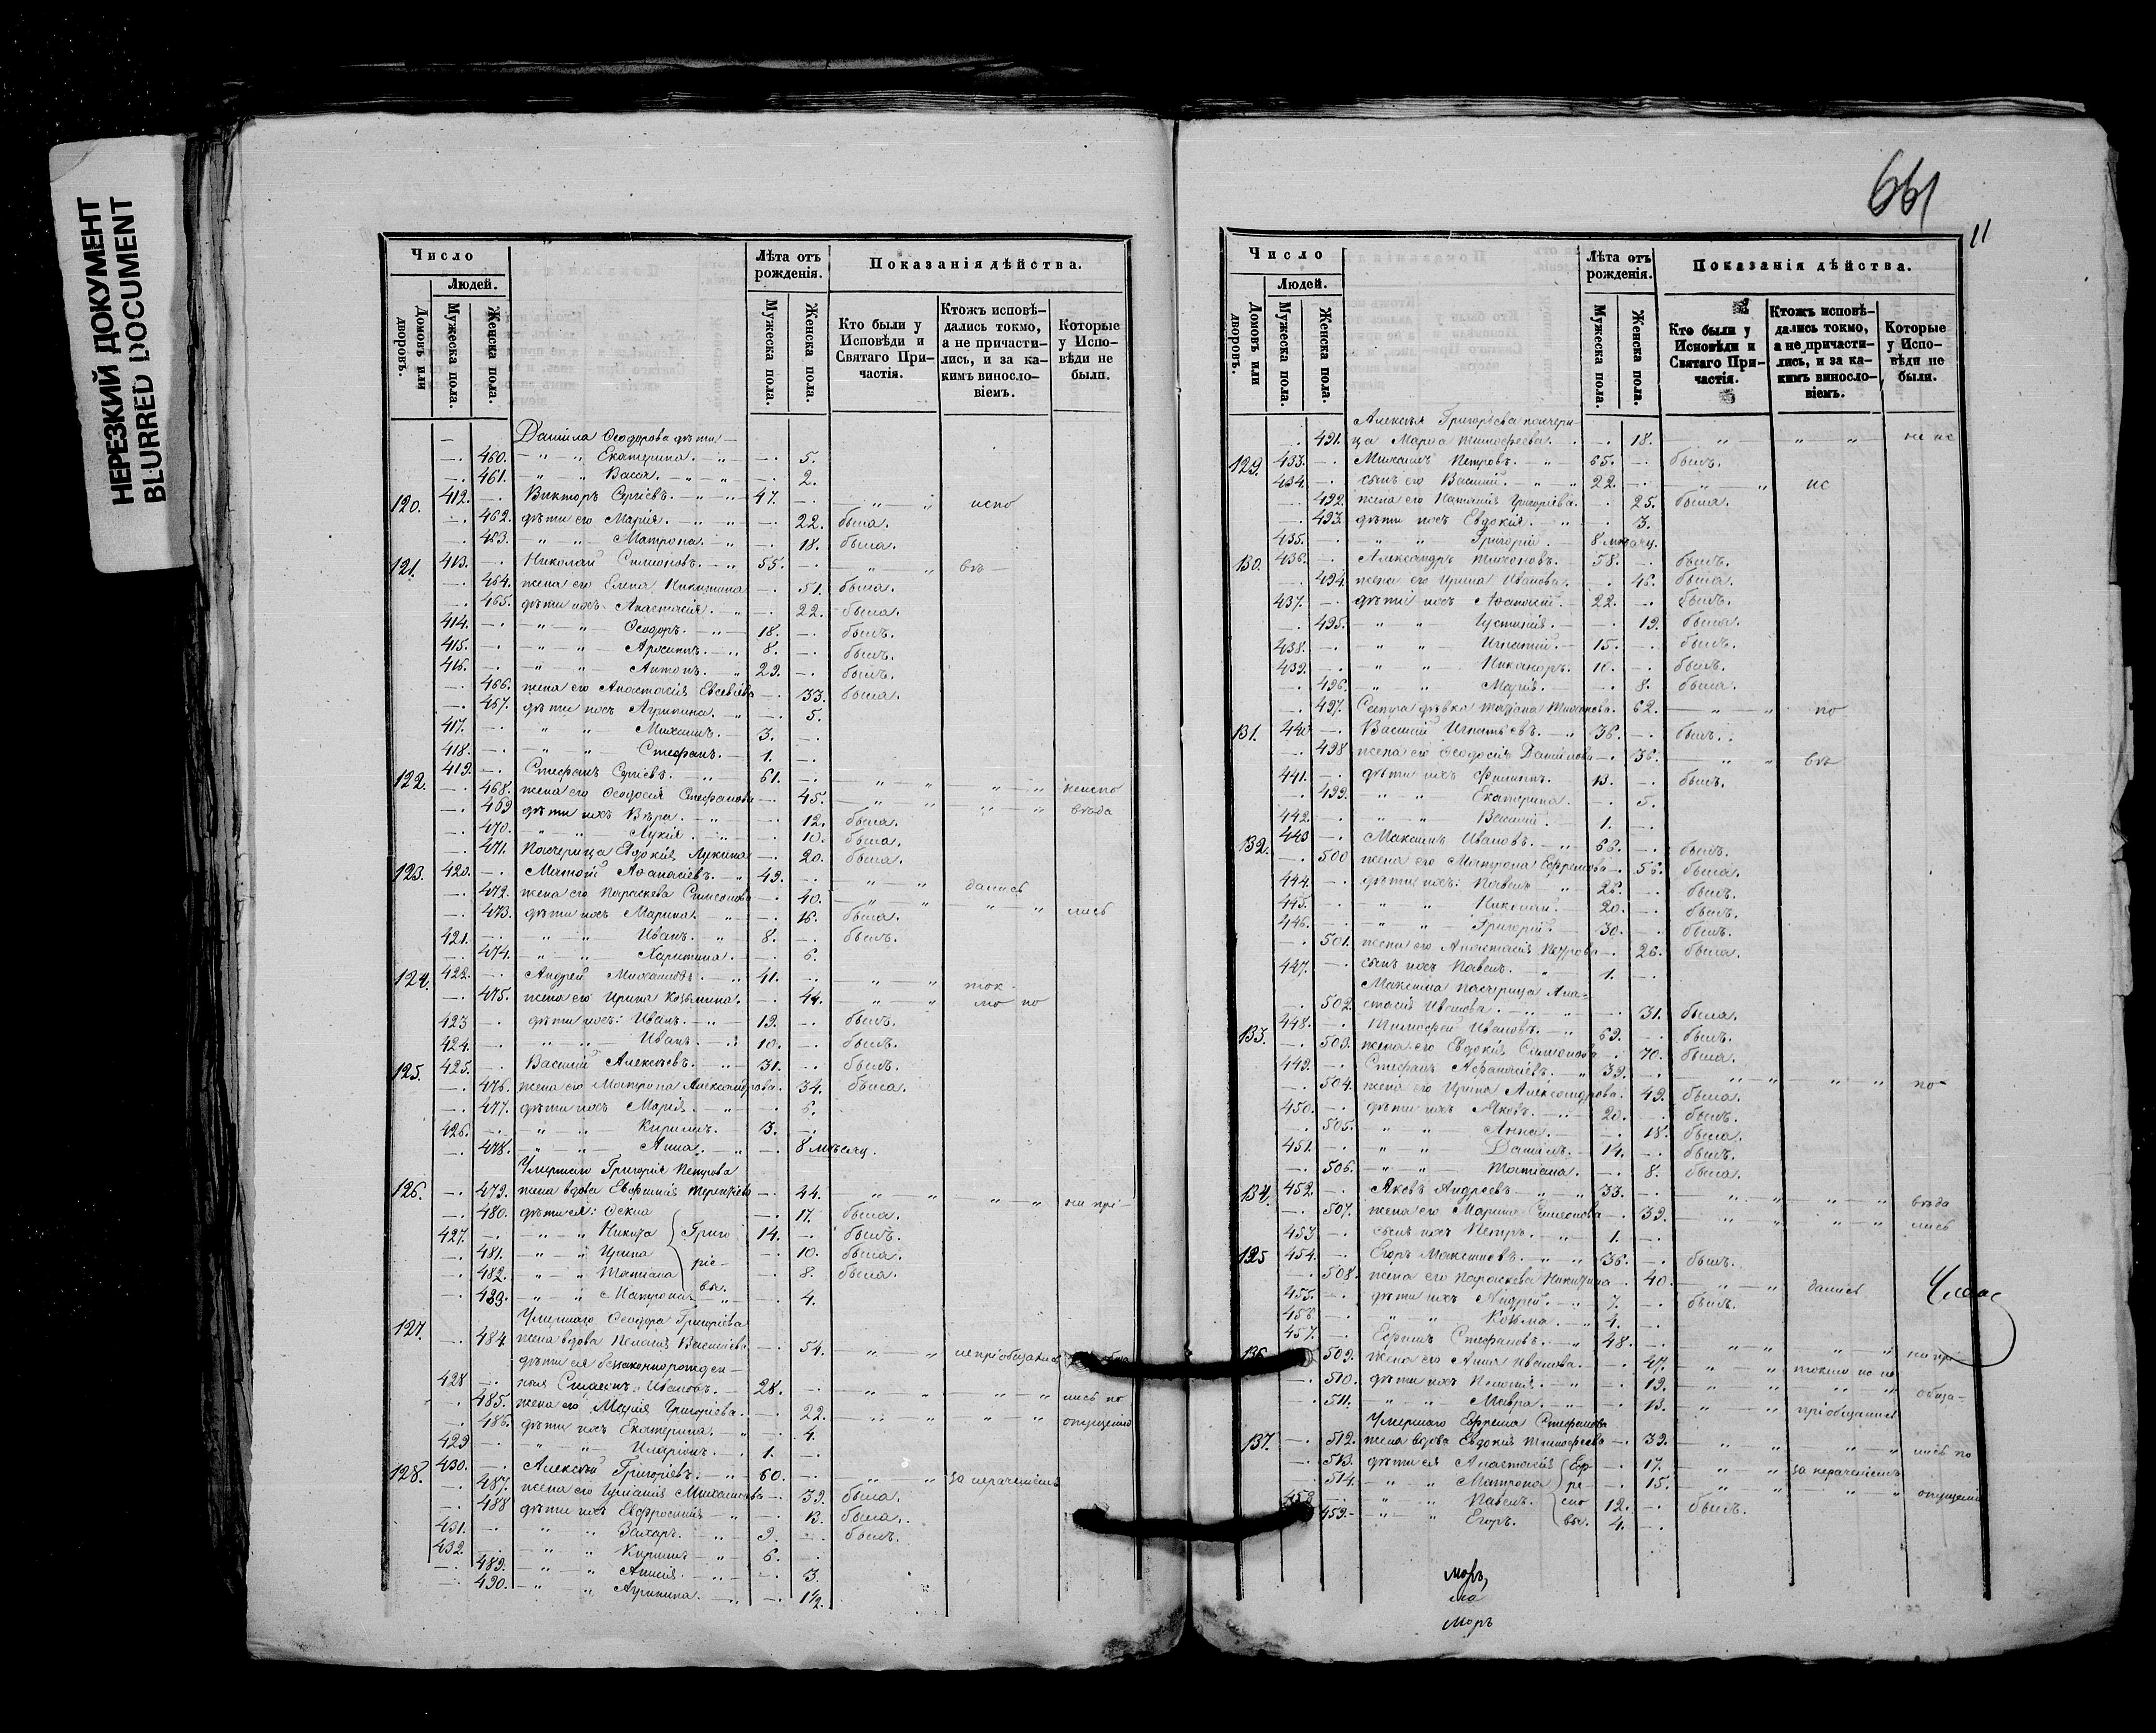 НЕРЕЗКИЙ ДОКУМЕНТ
BLURRED DOCUMENT
Число
Людей.
Домовъ или дворовъ.
Мужеска пола.
Женска пола.
Лѣта отъ рожденія.
Мужеска пола.
Женска пола.
Показанія дѣйства.
Кто были у Исповѣди и Святаго Причастія.
Ктожъ исповѣдались токмо, а не причастились, и за какимъ винословіемъ.
Которые у Исповѣди не были.
Даніила Ѳеодорова дѣти
460. Екатерина. 5.
461. Васса. 2.
120. 412. Викторъ Сергіевъ. 47. испо
462. дѣти его Марія. 22. была.
463. Матрона. 18. была.
121. 413. Николай Симеоновъ. 55. вѣ
464. жена его Елена Никитина 51. была.
465. дѣти ихъ Анастасія. 22. была.
414. Ѳеодоръ. 18. былъ.
415. 8. былъ.
416. Антонъ. 29. былъ.
466. жена его Анастасія Евсевіева 33. была.
467. дѣти ихъ Агрипина. 5.
417. Михаилъ. 3.
418. Стефанъ. 1.
122. 419. Стефанъ Сергіевъ. 61.
468. жена его Ѳеодосія Стефанова 45. неиспо
469 дѣти ихъ Вѣра. 12. была. вѣда
470. Лукія. 10. была.
471. Падчерица Евдокія Лукина 20. была.
123. 420. Матѳій Аѳанасіевъ. 49. дались
472. жена его Параскева Симеонова 40. лись
473. дѣти ихъ Марина. 16. была.
421. Иванъ. 8. былъ.
474. Харитина. 6.
124. 422. Андрей Михаиловъ. 41. ток
475. жена его Ирина Козьмина. 44. мо по
423 дѣти ихъ: Иванъ. 19. былъ.
424. Иванъ. 10. былъ.
125. 425. Василій Алексѣевъ. 31. былъ.
476. жена его Матрона Александрова. 34. была.
477. дѣти ихъ Марія. 6.
426. Кириллъ. 3.
478. Анна. 8 мѣсяц.
Умершаго Григорія Петрова
126. 479. жена вдова Евфимія Терентіева 44. ни прі-
480. дѣти ея: Ѳекла 17. была.
427. Никита Григо 14. былъ.
481. Ирина 10. была.
482. Татіана ріе- 8. была.
483. Матрона вы. 4.
Умершаго Ѳеодора Григоріева
127. 484 жена вдова Пелагія Василіева 54. непріобщались
дѣти ея беззаконнорожден-
428 ная Симеонъ Ивановъ. 28. лись по
485. жена его Марія Григоріева. 22. опущенію
486. дѣти ихъ Екатерина. 4.
429 Иларіонъ. 1.
128. 430. Алексѣй Григоріевъ. 60. за нерачением
487. жена его Іуліанія Михаилова 39. была.
488 дѣти ихъ Евфросинія 13. была.
431. Захаръ. 9. былъ.
432. Кириллъ 6.
489. Анисія. 3.
490. Агрипина. 1½.
661
11
Число
Людей.
Домовъ или дворовъ.
Мужеска пола.
Женска пола.
Лѣта отъ рожденія.
Мужеска пола.
Женска пола.
Показанія дѣйства.
Кто были у Исповѣди и Святаго Причастія.
Ктожъ исповѣдались токмо, а не причастились, и за какимъ винословіемъ.
Которые у Исповѣди не были.
Алексѣя Григоріева падчери-
491. ца Марѳа Тимоѳеева. 18. не ис
129. 433. Михаилъ Петровъ. 65. былъ.
434. сынъ его Василій. 22. ис
492. жена его Наталія Григоріева. 25. была.
493. дѣти ихъ Евдокія. 3.
435. Григорій. 8 мѣсяц.
130. 436. Александръ Тихоновъ. 58. былъ.
494. жена его Ирина Иванова. 46. была.
437. дѣти ихъ Аѳанасій. 22. былъ.
495. Іустинія. 19. была.
438. Игнатій. 15. былъ.
439. Никаноръ. 10. былъ.
496. Марія. 8. была.
497. Сестра дѣвка Татіана Тихонова. 62. по
131. 440 Василій Игнатьевъ. 36. былъ.
498 жена его Ѳеодосія Даниілова 36. вѣ
441. дѣти ихъ Филиппъ. 13. былъ.
499. Екатерина. 5.
442. Василій. 1.
132. 443 Максимъ Ивановъ. 66. былъ.
500 жена его Матрона Ефремова 56. была.
444. дѣти ихъ: Павелъ 26. былъ.
445. Николай. 20. былъ.
446. Григорій. 30. былъ.
501. жена его Анастасія Петрова 26. была.
447. сынъ ихъ Павелъ. 1.
Максима падчерица Ана-
502. стасія Иванова. 31. была.
133. 448. Тимоѳей Ивановъ. 69. былъ.
503. жена его Евдокія Симеонова 70. была.
449. Стефанъ Аѳанасіевъ. 39. по
504. жена его Ирина Александрова. 49. была.
450. дѣти ихъ Яковъ. 20. былъ.
505. Анна. 18. была.
451. Даніилъ. 14. былъ.
506. Татіана. 8. была.
134. 452. Яковъ Андреевъ 33. вѣда
507. жена его Марина Симеонова 39. лись
453 сынъ ихъ Петръ. 1.
135 454. Егоръ Максимовъ. 36. былъ.
508. жена его Параскева Никитина 40. дались
455. дѣти ихъ Андрей. 7. былъ.
456. Козьма. 4.
457. Ефимъ Стефановъ. 48. ни прі
136. 509. жена его Анна Иванова. 47. токмо но не
510. дѣти ихъ Пелагія. 19. обща-
511. Мавра. 13. пріобщались
Умершаго Ефрема Стефанова
137. 512. жена вдова Евдокія Тимоѳеева 39. лись по
513. дѣти ея Анастасія Еф 17. за нерачением
514. Матрона ре 15. опущенію
458 Павелъ. мо 12. былъ.
459. Егоръ. вы. 4.